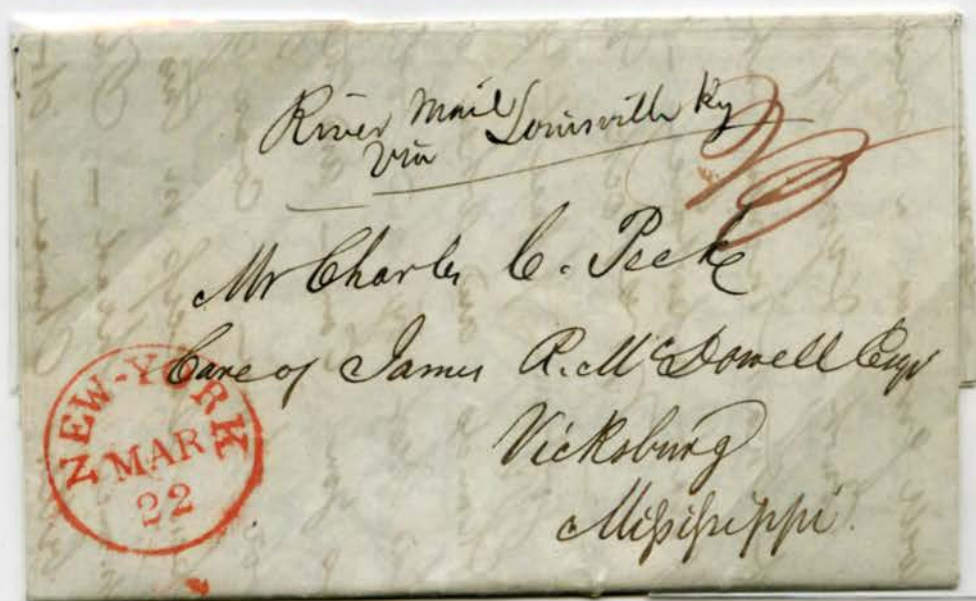 River Mail
via Louisville Ky
Mr Charles C. Peck
Care of James R. McDowell Esqr
Vicksburg
Mississippi.
NEW-YORK
MAR
22